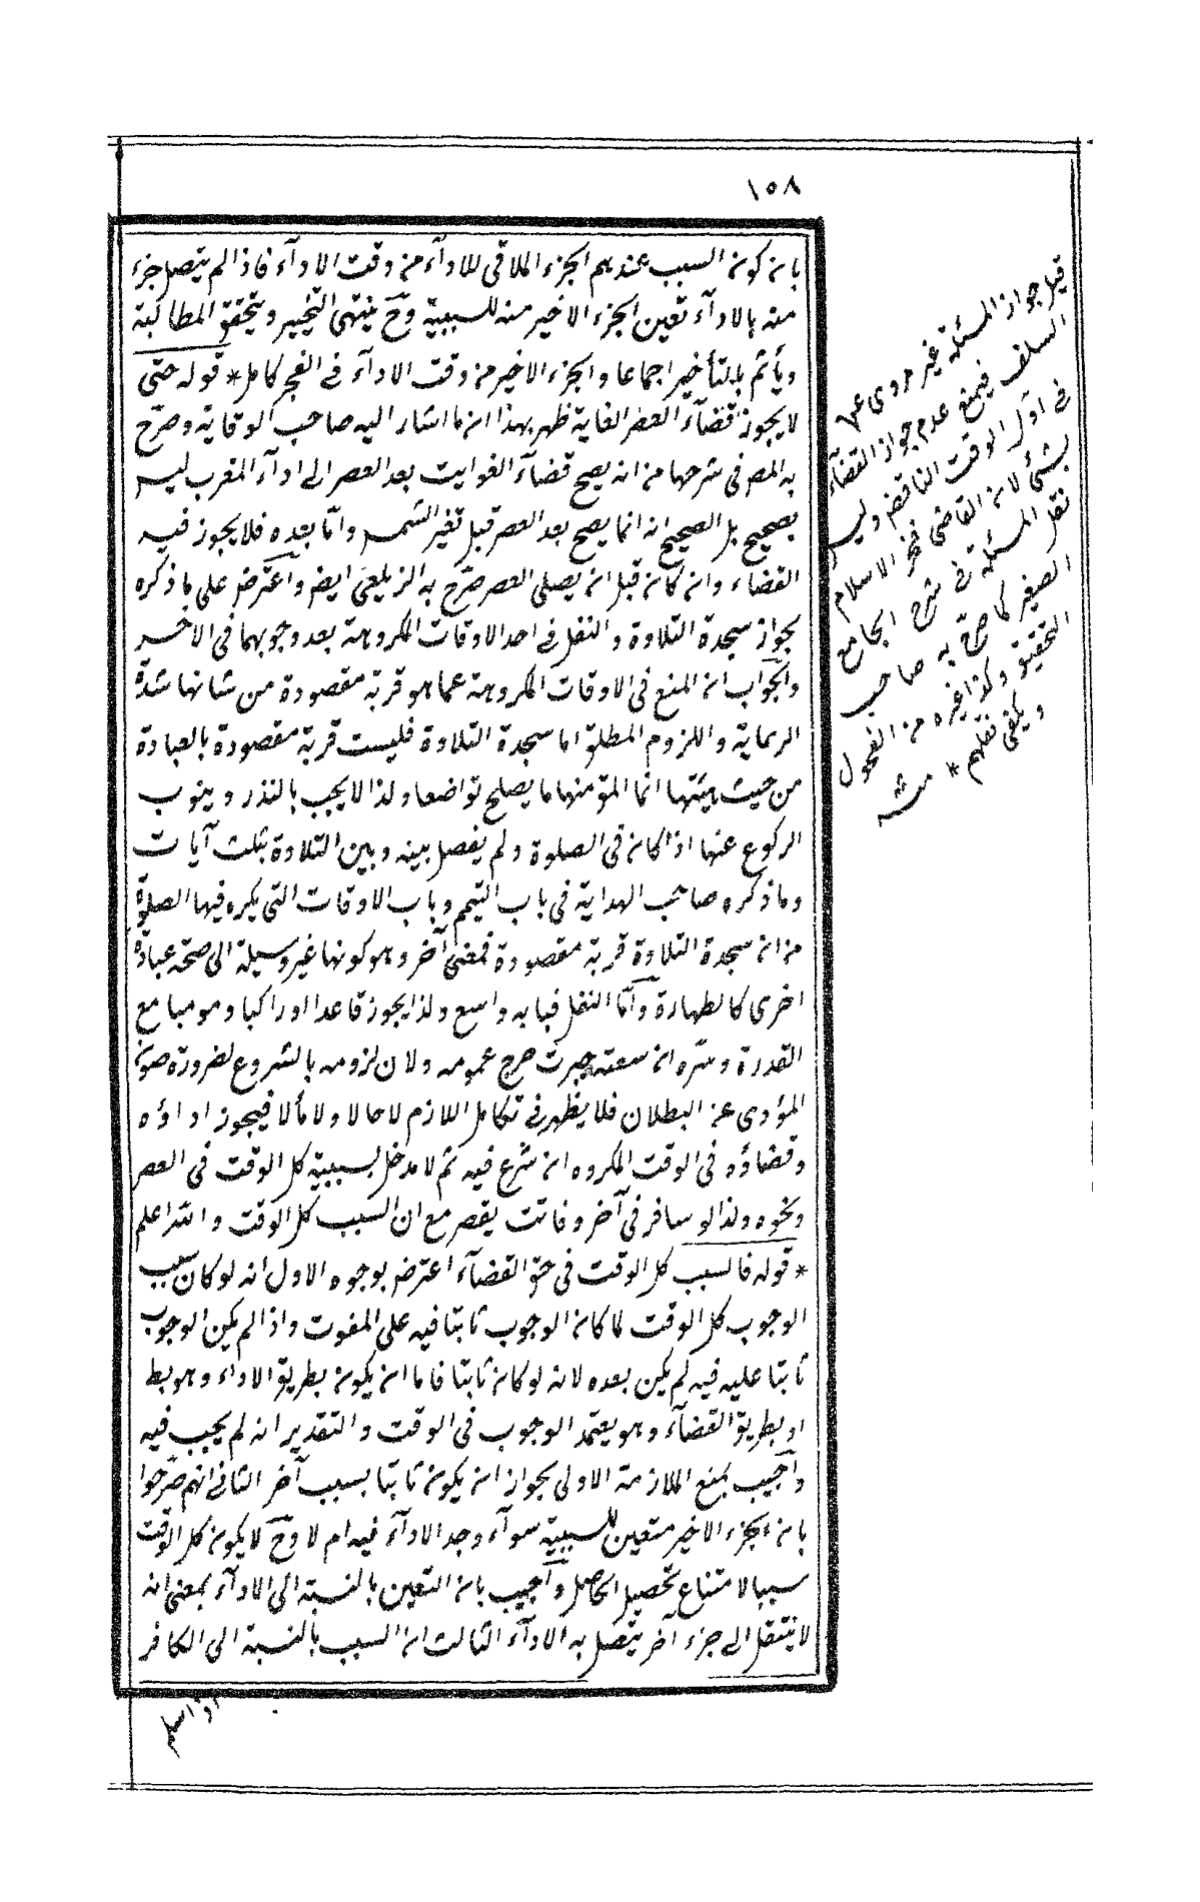 ١٥٨
بان كون السبب عندهم الجزء الملاقى للادآء من وقت الادآء فاذا لم يتصل جزء
منه بالادآء تعين الجزء الاخير منه للسببية وح ينتهى التخيير ويتحقق المطالبة
ويأثم بالتأخير اجماعا والجزء الاخير من وقت الادآء فى الفجر كامل * قوله حتى
لا يجوز قضآء العصر الفاية ظهر بهذا ان ما اشار اليه صاحب الوقاية وصرّح
به المص فى شرحها من انه يصح قضآء الفوايت بعد العصر الى ادآء المغرب ليس
بصحيح بل الصحيح انه انما يصح بعد العصر قبل تغير الشمس وامّا بعده فلا يجوز فيه
القضاء وان كان قبل ان يصلى العصر صرّح به الزيلعى ايض واعترض على ما ذكره
بجواز سجدة التلاوة والنفل فى احد الاوقات المكروهة بعد وجوبهما فى الآخر
والجواب ان المنع فى الاوقات المكروهة عما هو قربة مقصودة من شانها شدة
الرعاية واللزوم المطلق اما سجدة التلاوة فليست قربة مقصودة بالعبادة
من حيث هيئتها انما المق منها ما يصلح تواضعا ولذا لا يجب بالنذر وينوب
الركوع عنها اذا كان فى الصلوة ولم يفصل بينه وبين التلاوة بثلث آيات
وما ذكره صاحب الهداية فى باب التيمم وباب الاوقات التى يكره فيها الصلوة
من ان سجدة التلاوة قربة مقصودة فمعنى آخر وهو كونها غير وسيلة الى صحة عبادة
اخرى كالطهارة وامّا النفل فبابه واسع ولذا يجوز قاعدا او راكبا ومومبا مع
القدرة وسرّه ان سعته جبرت حرج عمومه ولان لزومه بالشروع لضرورة صون
المؤدى عن البطلان فلا يظهر فى تكامل اللازم لا حالا ولا مألا فيجوز اداؤه
وقضاؤه فى الوقت المكروه ان شرع فيه ثم لا مدخل لسببية كل الوقت فى العصر
ونحوه ولذا لو سافر فى آخر وفاتت يقصر مع ان السبب كل الوقت والله اعلم
* قوله فالسبب كل الوقت فى حق القضآء اعترض بوجوه الاول انه لو كان سبب
الوجوب كل الوقت لما كان الوجوب ثابتا فيه على المفوت واذا لم يكن الوجوب
ثابتا عليه فيه لم يكن بعده لانه لو كان ثابتا فاما ان يكون بطريق الاداء وهو بط
او بطريق القضآء وهو يعتمد الوجوب فى الوقت والتقدير انه لم يجب فيه
وأجيب بمنع الملازمة الاولى بجواز ان يكون ثابتا بسبب آخر الثانى انهم صرّحوا
بان الجزء الاخير متعين للسببية سوآء وجد الادآء فيه ام لا وح لا يكون كل الوقت
سببا لامتناع تحصيل الحاصل وأجيب بان التعين بالنسبة الى الادآء بمعنى انه
لا ينتقل الى جزء آخر يتصل به الادآء الثالث ان السبب بالنسبة الى الكافر
اذا اسلم
قيل جواز المسئلة غير مروى عن
السلف فيمنع عدم جواز القضآء
فى اول الوقت الناقص وليس
بشئ لان القاضى فخر الاسلام
نقل المسئلة فى شرح الجامع
الصغير كما صرّح به صاحب
التحقيق وكذا غيره من الفحول
ويكفى نقلهم * منه